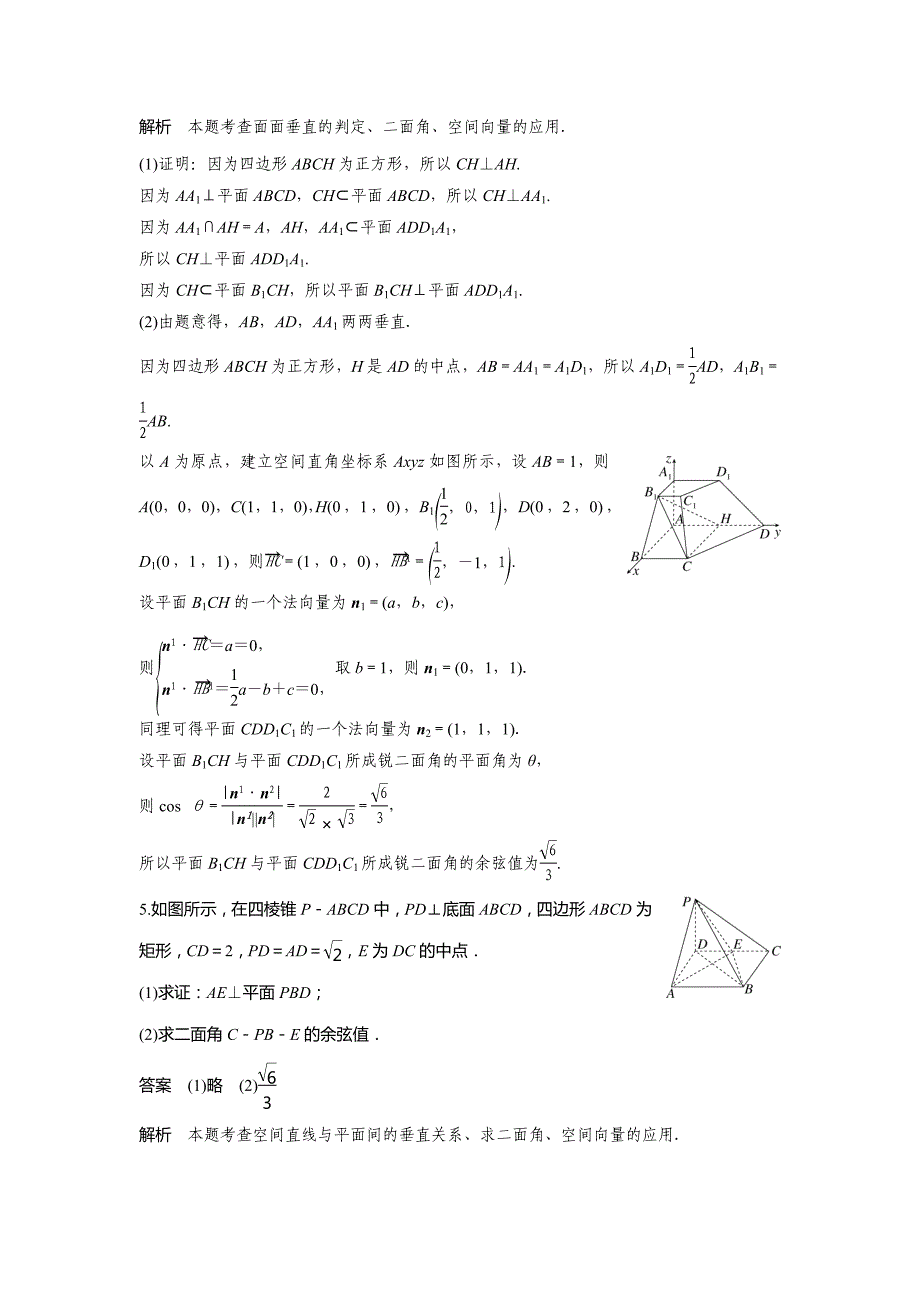 解析　本题考查面面垂直的判定、二面角、空间向量的应用.
(1)证明：因为四边形 ABCH 为正方形，所以 CH⊥AH.
因为 AA₁⊥平面 ABCD，CH⊂平面 ABCD，所以 CH⊥AA₁.
因为 AA₁∩AH＝A，AH，AA₁⊂平面 ADD₁A₁，
所以 CH⊥平面 ADD₁A₁.
因为 CH⊂平面 B₁CH，所以平面 B₁CH⊥平面 ADD₁A₁.
(2)由题意得，AB，AD，AA₁ 两两垂直.
因为四边形 ABCH 为正方形，H 是 AD 的中点，AB＝AA₁＝A₁D₁，所以 A₁D₁＝1/2 AD，A₁B₁＝
1/2 AB.
以 A 为原点，建立空间直角坐标系 Axyz 如图所示，设 AB＝1，则
A(0，0，0)，C(1，1，0)，H(0，1，0)，B₁(1/2，0，1)，D(0，2，0)，
D₁(0，1，1)，则HC＝(1，0，0)，HB¹＝(1/2，－1，1).
z
A₁
D₁
B₁
C₁
A
H
D
y
B
C
x
设平面 B₁CH 的一个法向量为 n₁＝(a，b，c)，
则{n¹·HC＝a＝0，
n¹·HB¹＝1/2 a－b＋c＝0， 取 b＝1，则 n₁＝(0，1，1).
同理可得平面 CDD₁C₁的一个法向量为 n₂＝(1，1，1).
设平面 B₁CH 与平面 CDD₁C₁所成锐二面角的平面角为 θ，
则 cos θ＝|n¹·n²|/|n¹||n²|＝2/(√2×√3)＝√6/3，
所以平面 B₁CH 与平面 CDD₁C₁所成锐二面角的余弦值为√6/3.
5.如图所示，在四棱锥 P－ABCD 中，PD⊥底面 ABCD，四边形 ABCD 为
矩形，CD＝2，PD＝AD＝√2，E 为 DC 的中点．
(1)求证：AE⊥平面 PBD；
(2)求二面角 C－PB－E 的余弦值．
P
D
E
C
A
B
答案　(1)略　(2)√6/3
解析　本题考查空间直线与平面间的垂直关系、求二面角、空间向量的应用.